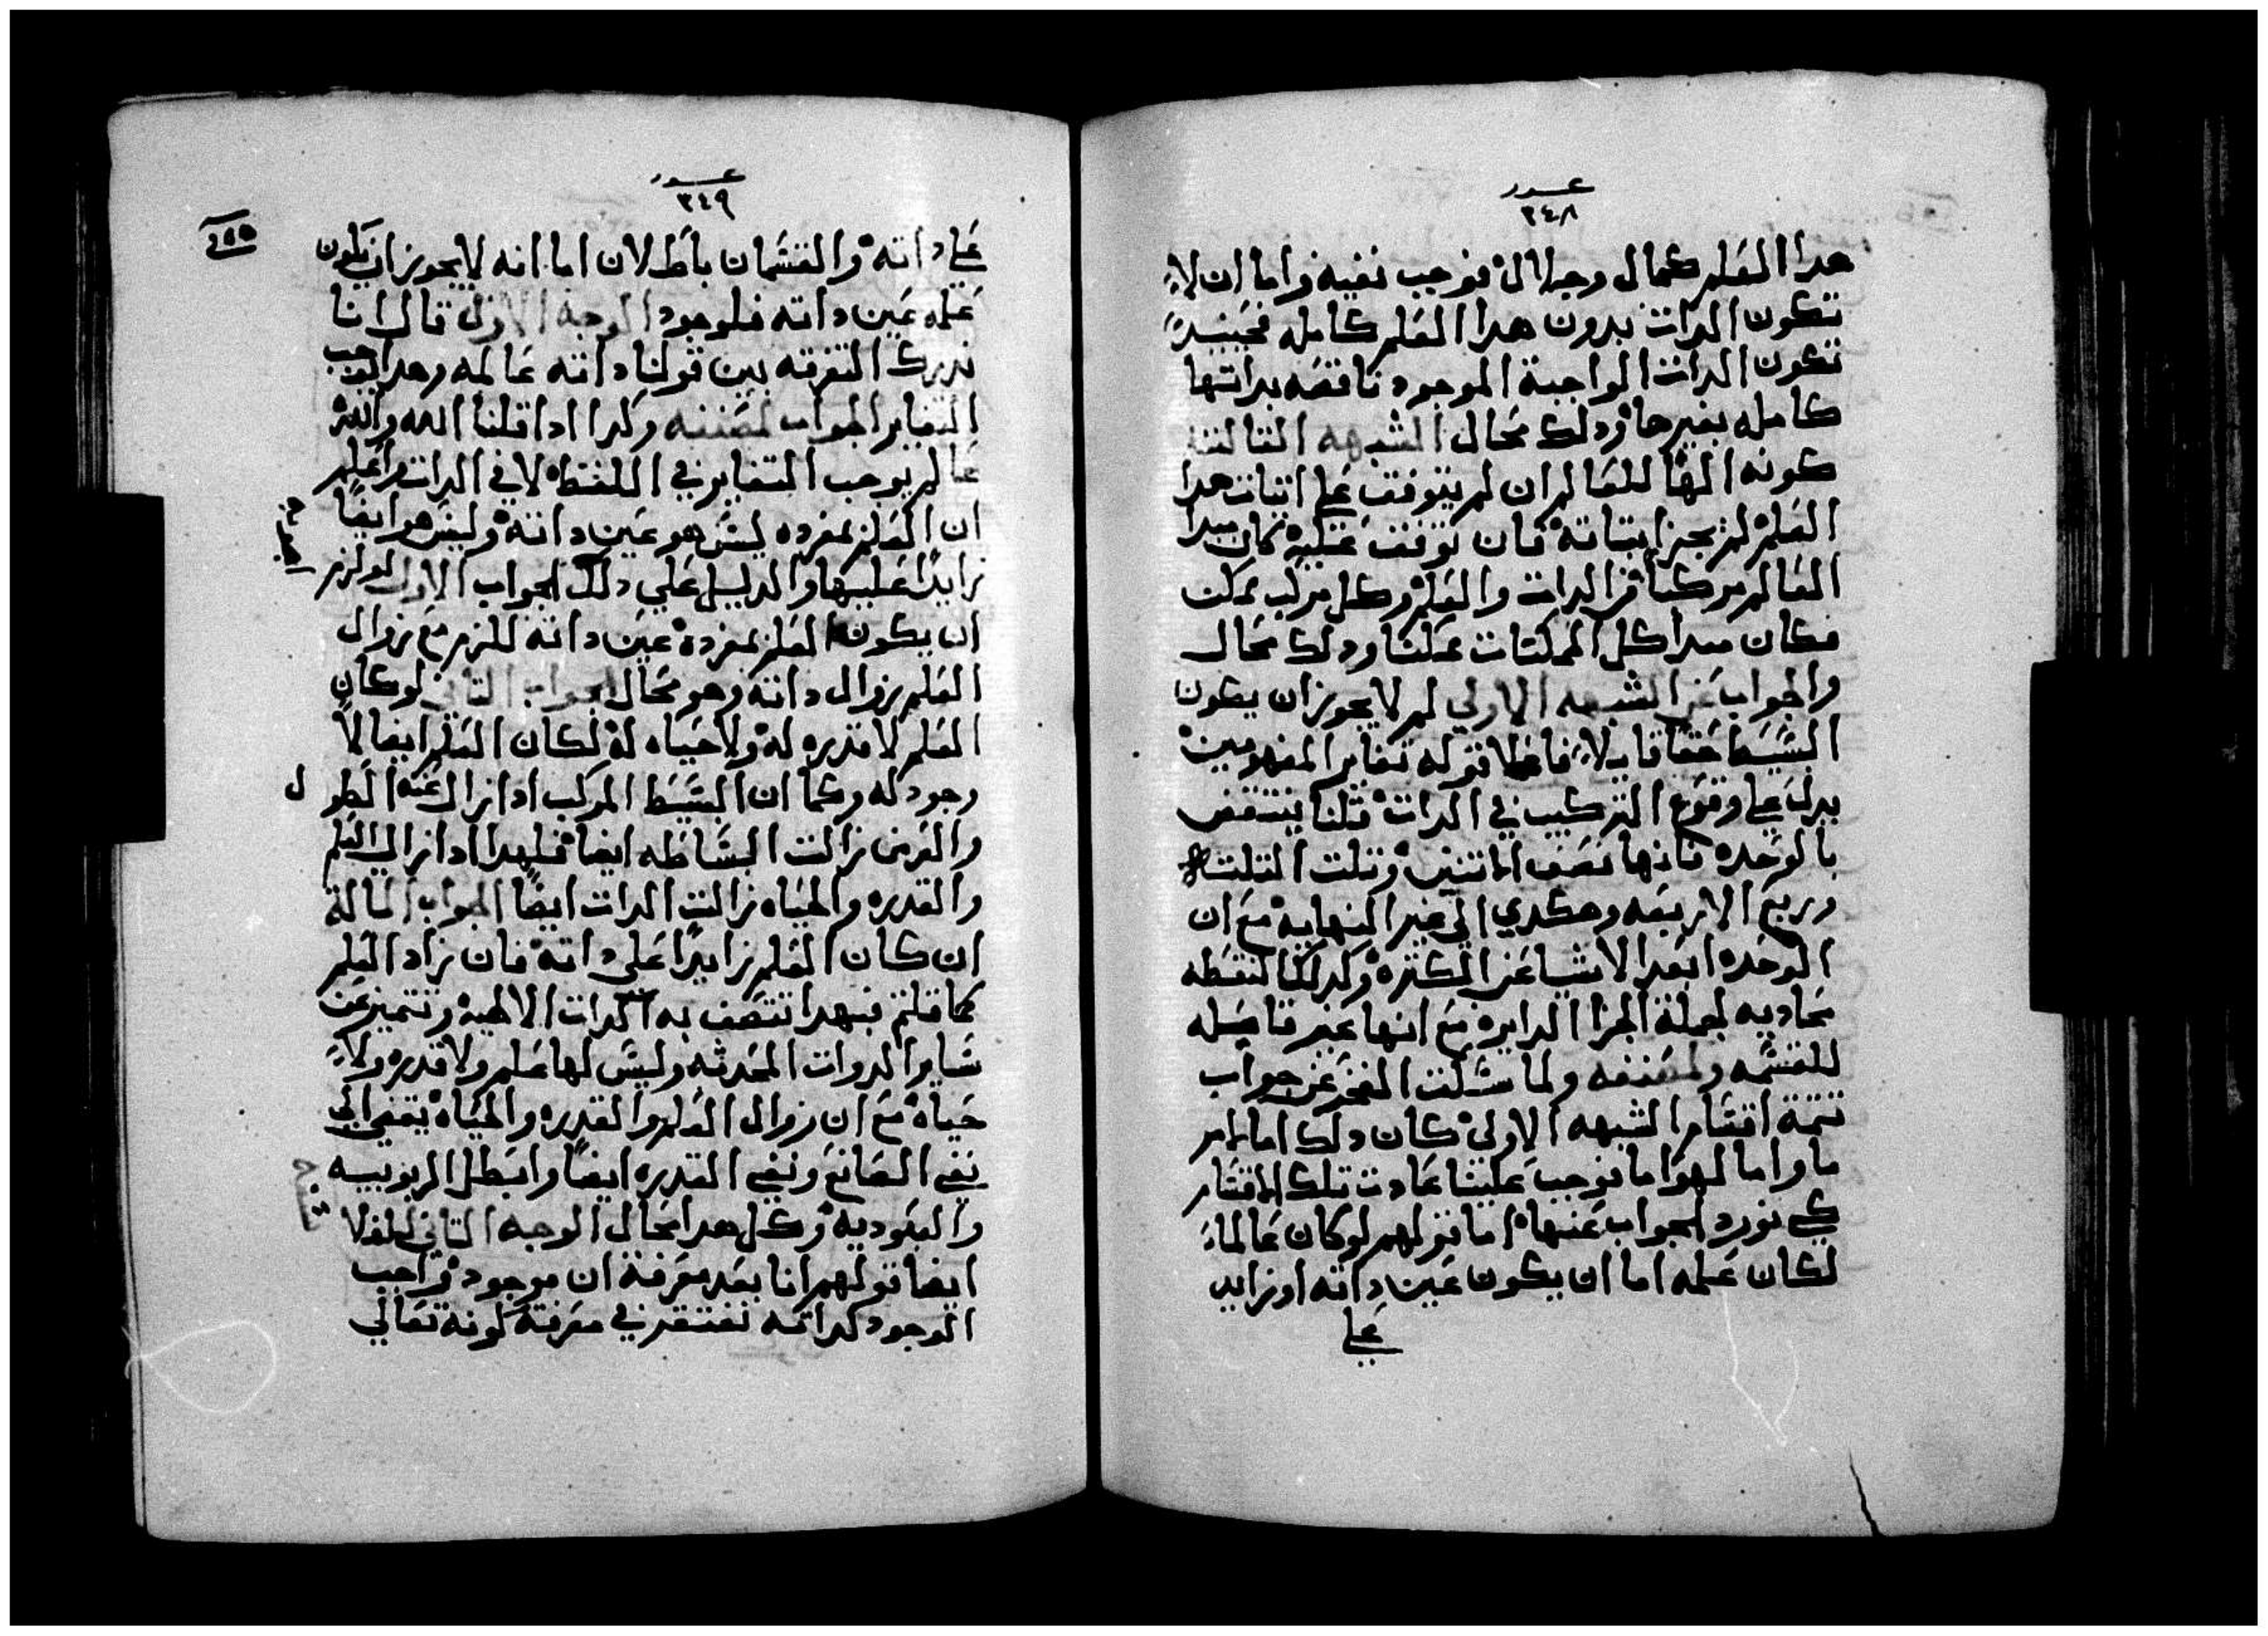 عدد
٣٤٨
هدا العلم كمال وجلال فوجب نفيه واما ان لا
تكون الدات بدون هدا العلم كامله فحينيد
تكون الدات الواجبة الموجود ناقصه بداتها
كامله بغيرها ودلك محال الشبهه التالته
كونه الهًا للعالم ان لم يتوقف علي اتبات هدا
العلم لم يجز اتباته فان توقف عليه كان مبدا
العالم مركبا من الدات والعلم وكل مركب ممكن
فكان مبدا كل الممكنات ممكنا ودلك محال
والجواب عن الشبهه الاولي لم لا يجوز ان يكون
البسيط حقا قابلا فاعلا قوله تغاير المفهومين
يدل علي وقوع التركيب في الدات قلنا ينتقض
بالوحده فانها نصف الاتنين وتلت التلته
وربع الاربعه وهكدي الي غير النهايه مع ان
الوحده ابعد الاشيا عن الكتره وكدلك النقطه
محاديه لجملة اجزا الدايره مع انها غير قابله
للقسمه ولمصنفه ولما سالت الفخر عن جواب
تتمة اقسام الشبهه الاولي كان دلك اما لامر
ما واما لهوا ما فوجب علينا عادت تلك الاقسام
كي نورد الجواب عنها اما قولهم لو كان عالما
لكان علمه اما ان يكون عين داته او زايد
علي
عدد
٣٤٩
٢٥٥
علي داته والقسمان باطلان اما انه لا يجوز ان يكون
علمه عين داته فلوجود الوجه الاول قال انا
ندرك التفرقه بين قولنا داته عالمه وهدا يوجب
التغاير الجواب لمصنفه وكدا ادا قلنا الله والله
عالم يوجب التغاير في اللفظ لا في الدات واعلم
ان العلم بمفرده ليس هو عين داته وليس هو ايضًا
زايدًا عليها والدليل علي دلك الجواب الاول لو لزم
ان يكون العلم بمفرده عين داته للزم مع زوال
العلم زوال داته وهو محال الجواب التاني لو كان
العلم لا قدره له ولا حياه له لكان العلم ايضا لا
وجود له وكما ان البسيط المركب ادا زال عنه الطول
والعرض زالت البساطه ايضا فلهدا ادا زال العلم
والقدره والحياه زالت الدات ايضًا الجواب التالت
ان كان العلم زايدًا علي داته فان زاد العلم
كما قلتم فبهدا تتصف به الدات الالهيه وتتميز عن
ساير الدوات المحدثه وليس لها علم ولا قدره ولا
حياه مع ان زوال العلم والقدره والحياه يقضي الي
نفي الصانع ونفي القدره ايضًا وابطل الربوبيه
والعبوديه وكل هدا محال الوجه التاني
ايضا قولهم انا بعد معرفة ان موجود واجب
الوجود لداته نفتقر في معرفة كونه تعالي